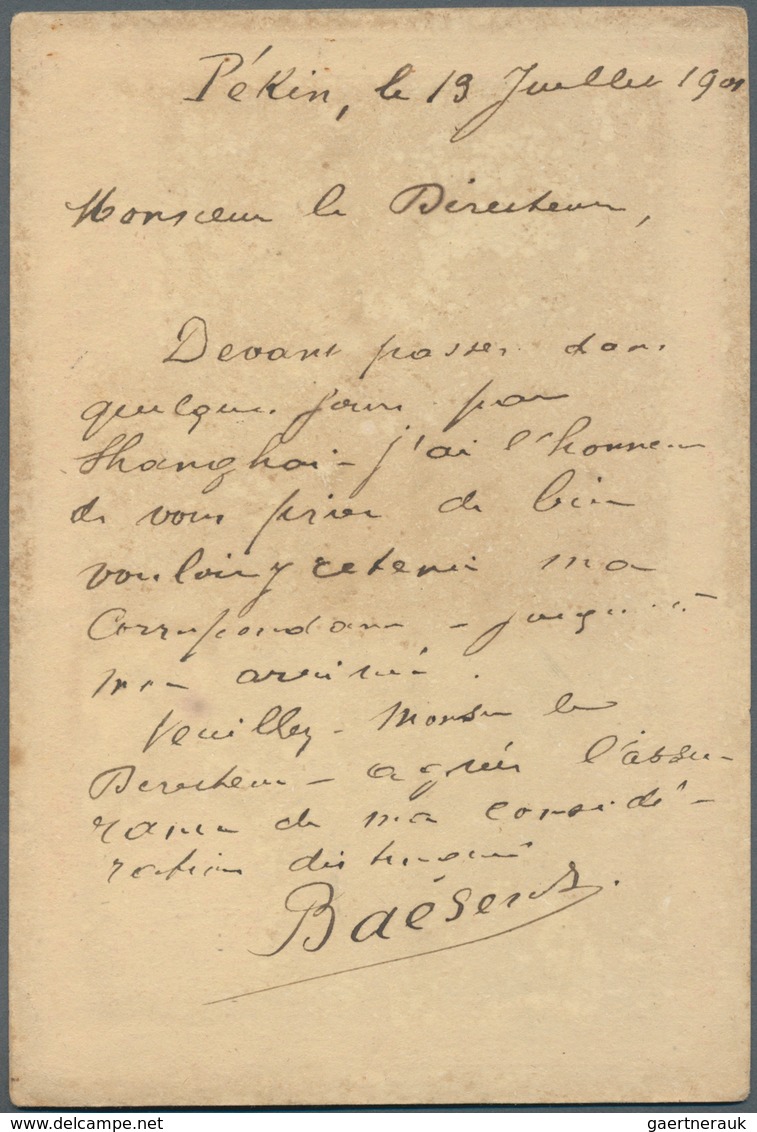 Pékin, le 19 Juillet 1901
Monsieur le Directeur,
Devant passer dans
quelques jours par
Shanghai - j'ai l'honneur
de vous prier de bien
vouloir y retenir ma
Correspondance - jusqu'à
mon arrivée.
Veuillez - Monsieur le
Directeur - agréer l'assu-
rance de ma considé-
ration distinguée
gaertnerauk